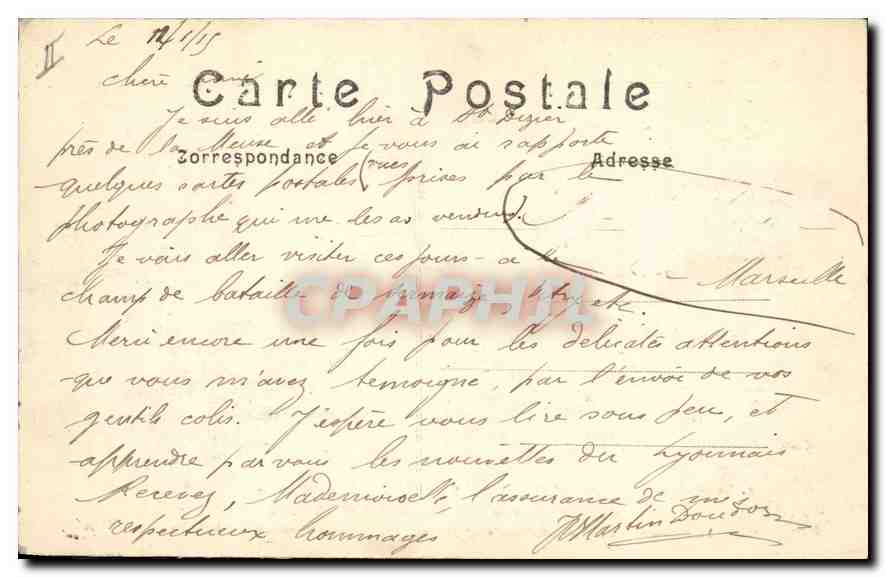 II
Le 12/1/15
Carte Postale
chère amie
Je suis allé hier à St Dizier
près de la Meuse et je vous ai rapporté
Correspondance
Adresse
quelques cartes postales (vues prises par le
photographe qui me les as vendus.
Je vais aller visiter ces jours-ci le
Marseille
champ de bataille de Vitry etc.
CPAPHIL
Merci encore une fois pour les délicates attentions
que vous m'avez témoigné, par l'envoi de vos
gentils colis. J'espère vous lire sous peu, et
apprendre par vous les nouvelles du Lyonnais
Recevez, Mademoiselle, l'assurance de mes
respectueux hommages
Martin